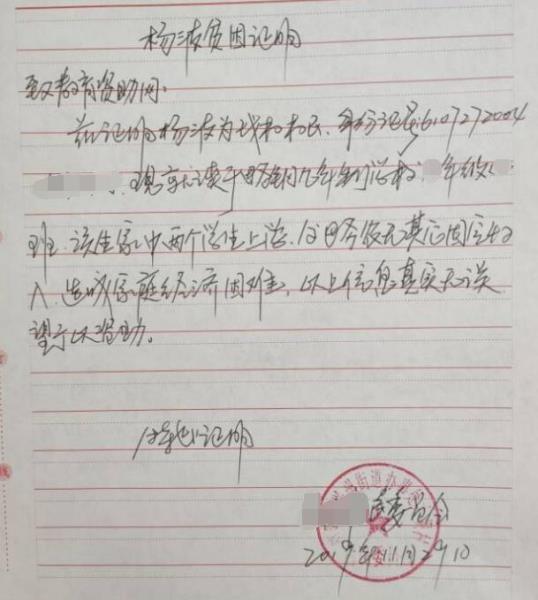 杨波贫困证明
致教育资助网:
兹证明杨波为我村村民,身份证号:6107272004
,现就读于 九年制学校 年级
班,该生家中两个学生上学,父母务农无其它固定收
入,造成家庭经济困难,以上信息真实无误
望予以资助。
特此证明
街道办
民委员会
2019年11月29日